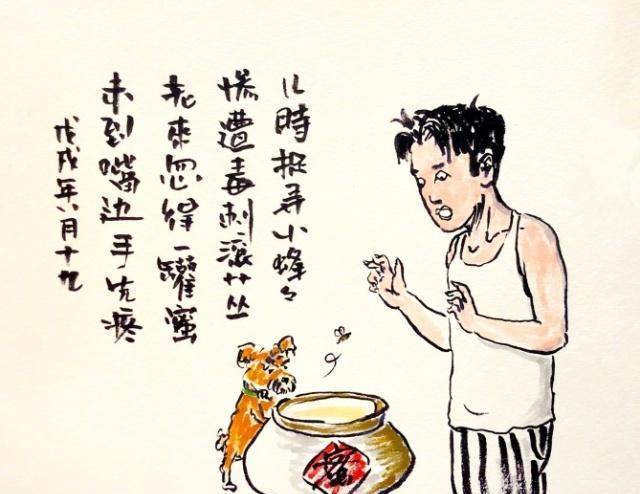 儿時捉弄小蜂々
惨遭毒刺滚艹丛
老來忽得一罐蜜
未到嘴边手先疼
戊戌年八月十九
蜜